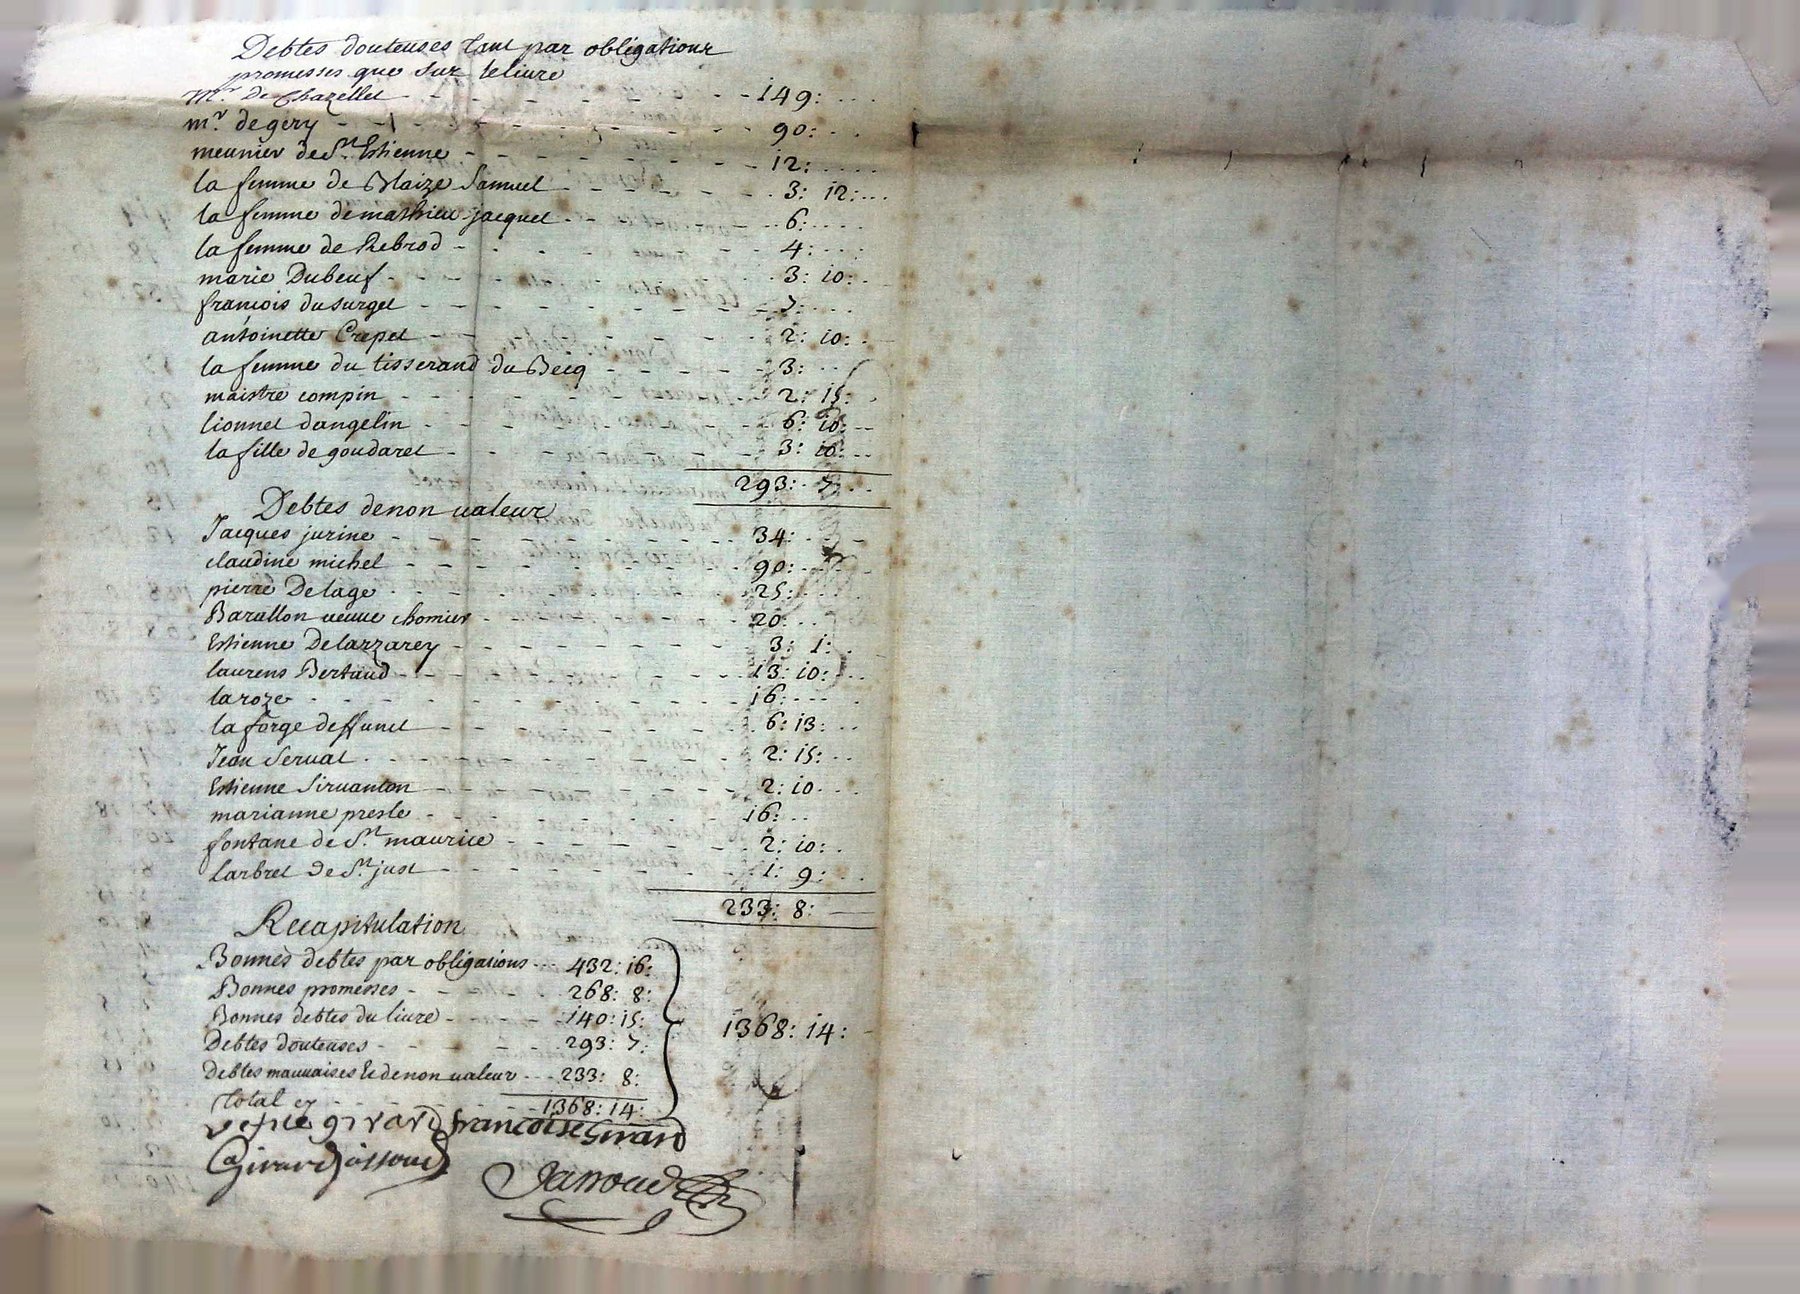 Debtes douteuses tant par obligations
promesses que sur le livre
Mr. De Chazellet 149:
mr. de gery 90:
meunier de St. Estienne 12:
la femme de Blaize Samuel 3: 12:
la femme de mathieu jacquet 6:
la femme de Rebrod 4:
marie Dubeuf 3: 10:
francois dusurget 7:
antoinette Crepet 2: 10:
la femme du tisserand du Becq 3:
maistre compin 2: 15:
lionnet dangelin 6: 10:
la fille de goudaret 3: 10:
293: 7:
Debtes de non valeur
Jacques jurine 34:
claudine michel 90:
pierre Delage 25:
Barallon veuve chomier 20:
Estienne Delarzarey 3: 1:
laurens Bertaud 13: 10:
laroze 16:
laforge deffunct 6: 13:
Jean Servat 2: 15:
Estienne Sirvanton 2: 10
marianne presle 16:
fontane de St. maurice 2: 10:
Larbret de St. just 1: 9:
233: 8:
Recapitulation
Bonnes debtes par obligations 432: 16:
Bonnes promesses 268: 8:
Bonnes debtes du livre 140: 15:
Debtes douteuses 293: 7:
1368: 14:
Debtes mauvaises & de non valeur 233: 8:
Total 1368: 14:
girard francoise Girard
Girard